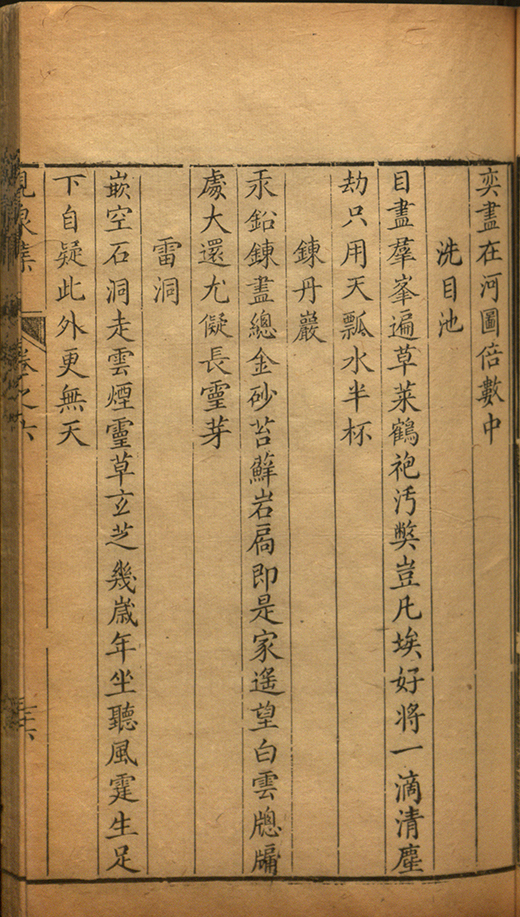 奕盡在河圖倍數中
洗目池
目盡羣峯遍草萊鶴袍汚獘豈凡埃好將一滴清塵
劫只用天瓢水半杯
鍊丹巖
汞鉛鍊盡總金砂苔蘚岩扃即是家遙望白雲牕牖
處大還尤儗長靈芽
雷洞
嵌空石洞走雲煙靈草玄芝幾歲年坐聽風霆生足
下自疑此外更無天
卷之六